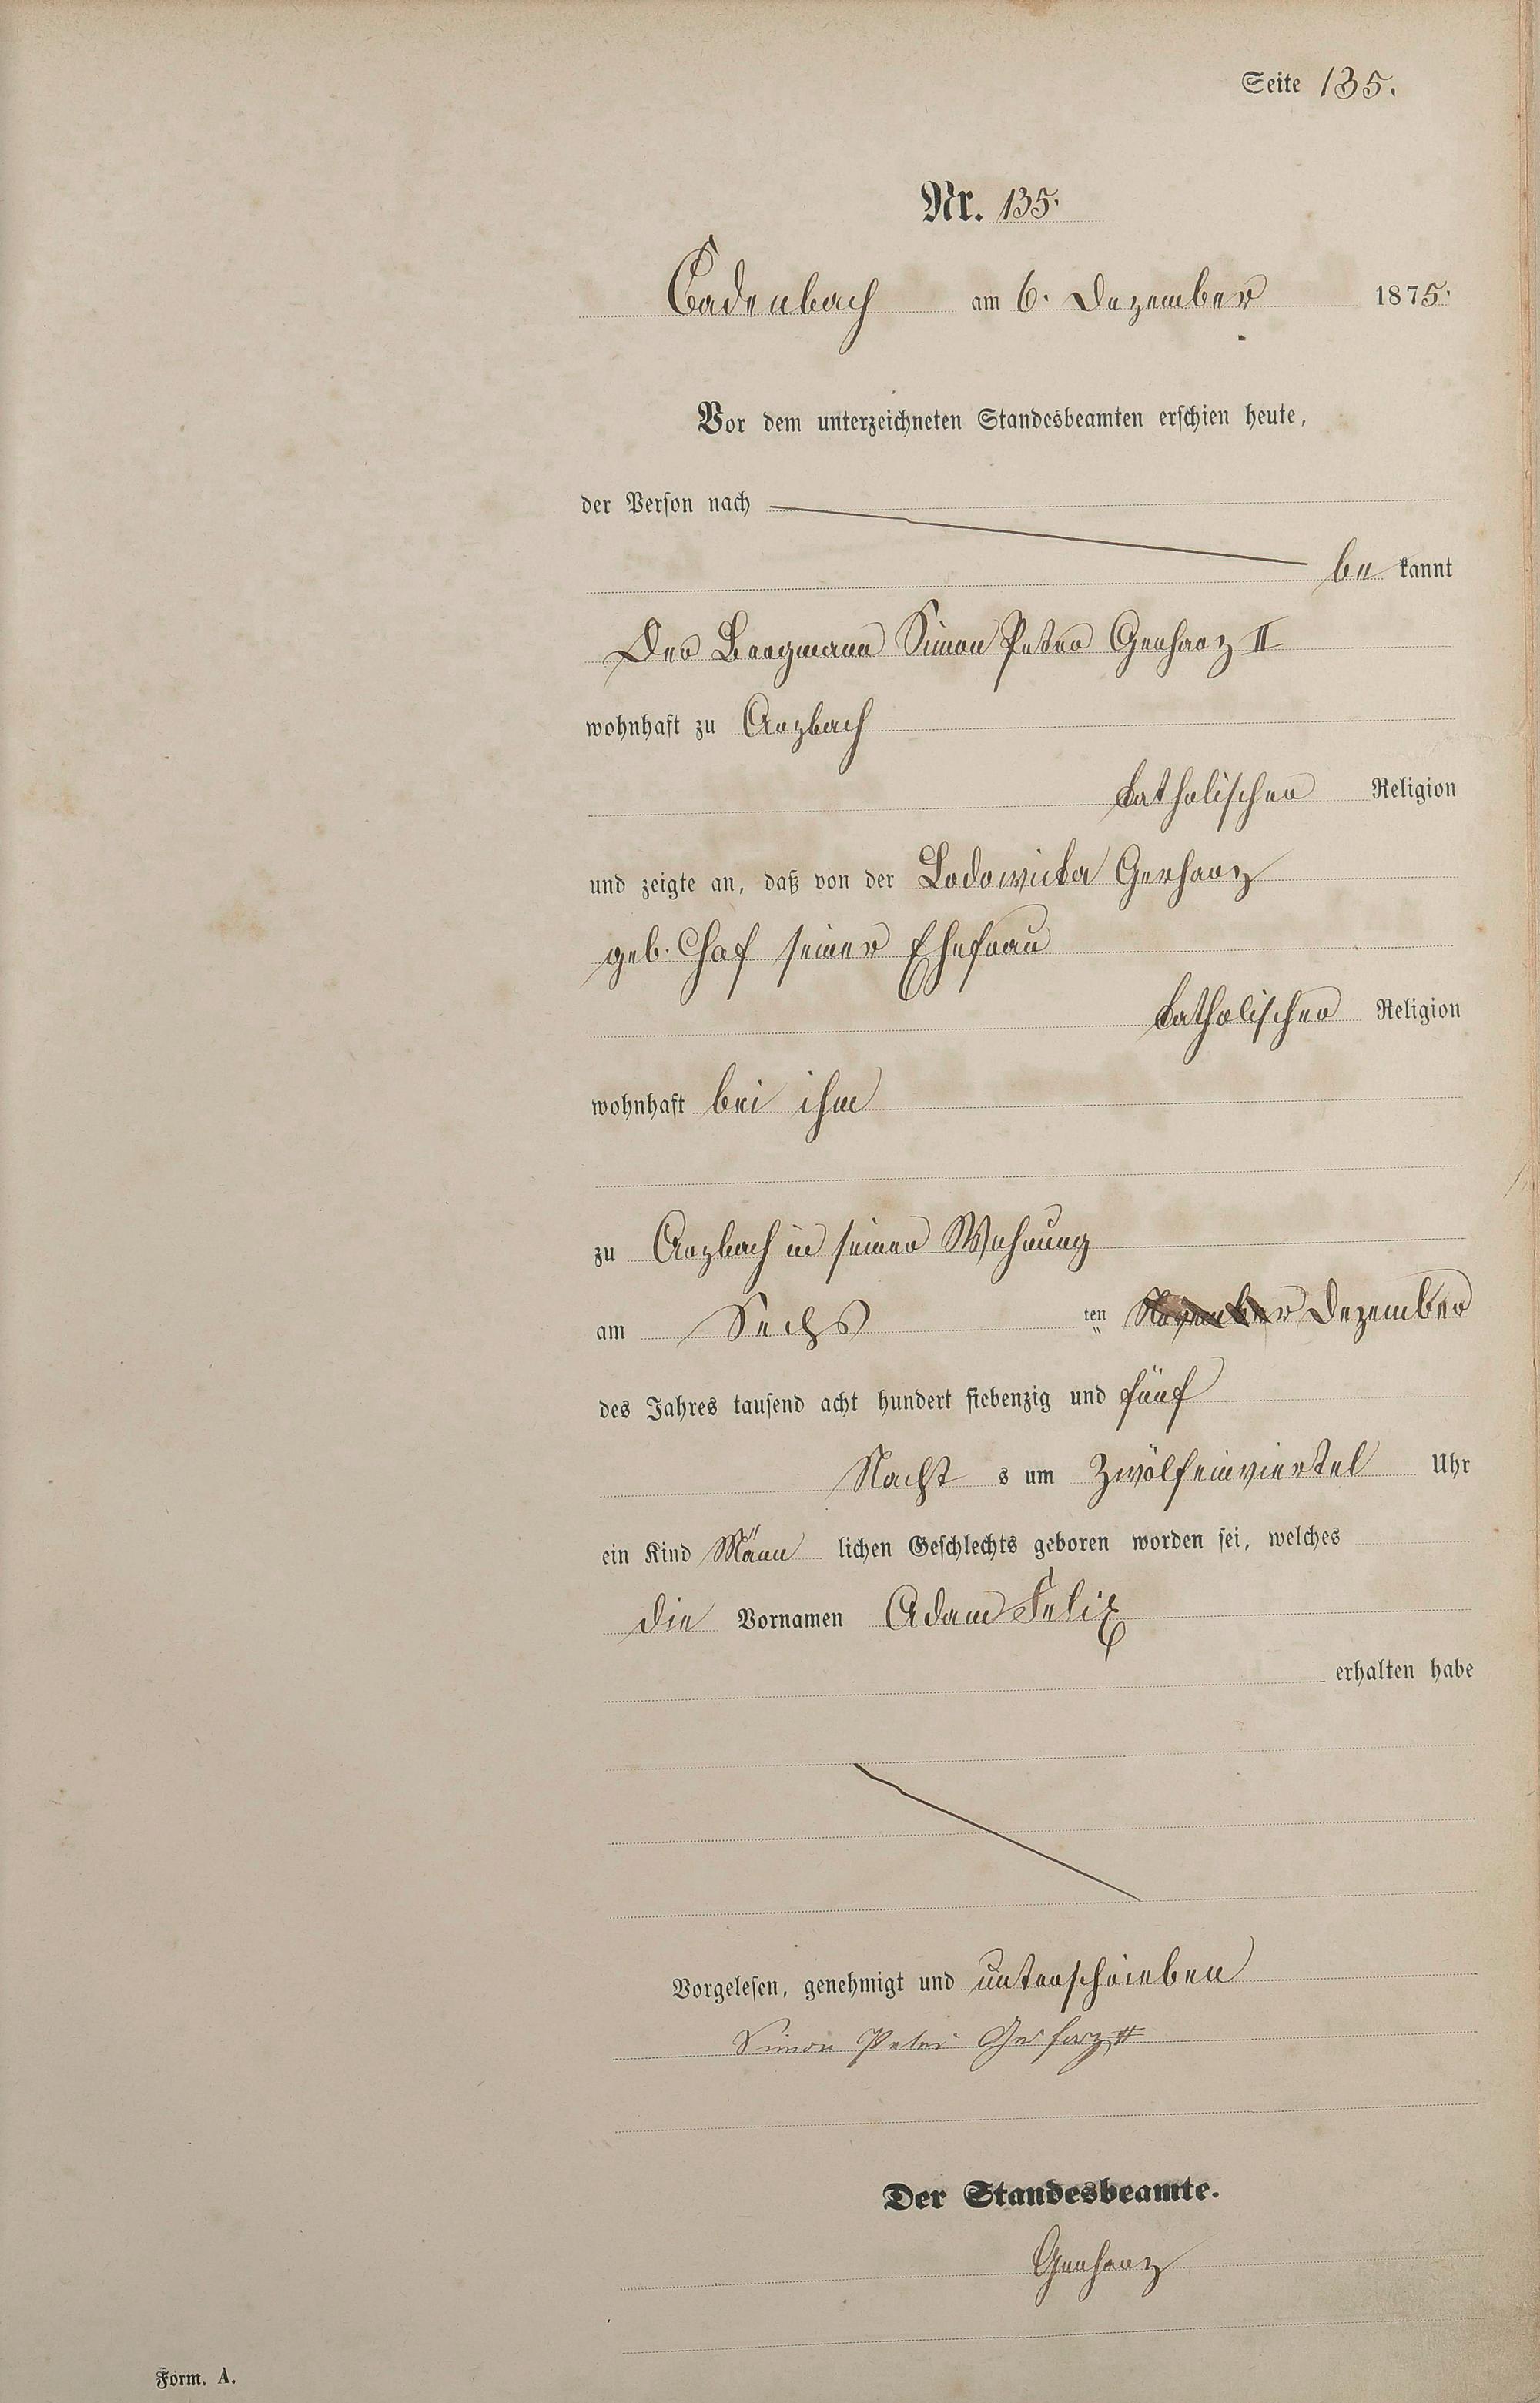 Seite 135.
Nr. 135.
Cadenbach am 6. Dezember 1875.
Vor dem unterzeichneten Standesbeamten erschien heute,
der Person nach
be kannt
Der Bergmann Simon Peter Gerharz II
wohnhaft zu Arzbach
katholischer Religion
und zeigte an, daß von der Lodowicka Gerharz
geb. seiner Ehefrau
katholischer Religion
wohnhaft bei ihm
zu Arzbach in seiner Wohnung
am Sechs ten November Dezember
des Jahres tausend acht hundert siebenzig und fünf
Nacht s um Zwölfeinviertel Uhr
ein Kind Männ lichen Geschlechts geboren worden sei, welches
die Vornamen Adam Felix
erhalten habe
Vorgelesen, genehmigt und unterschrieben
Simon Peter Gerharz II
Der Standesbeamte.
Gerharz
Form. A.